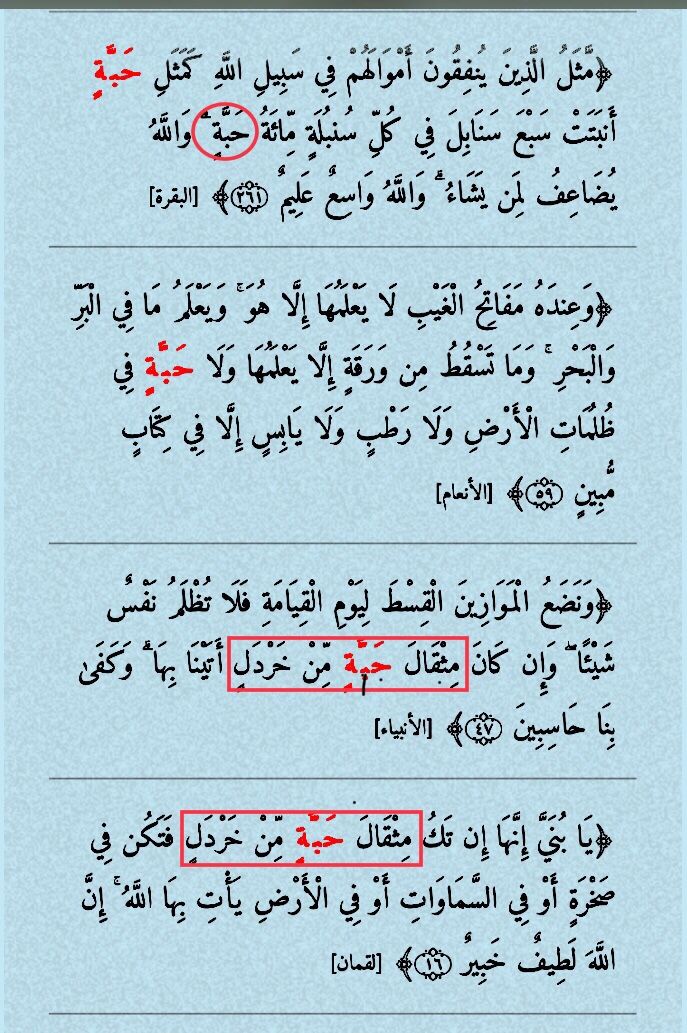 ﴿مَّثَلُ الَّذِينَ يُنفِقُونَ أَمْوَالَهُمْ فِي سَبِيلِ اللَّهِ كَمَثَلِ حَبَّةٍ
أَنبَتَتْ سَبْعَ سَنَابِلَ فِي كُلِّ سُنبُلَةٍ مِّائَةُ حَبَّةٍ ۗ وَاللَّهُ
يُضَاعِفُ لِمَن يَشَاءُ ۗ وَاللَّهُ وَاسِعٌ عَلِيمٌ ﴿٢٦١﴾ [البقرة]
﴿وَعِندَهُ مَفَاتِحُ الْغَيْبِ لَا يَعْلَمُهَا إِلَّا هُوَ ۚ وَيَعْلَمُ مَا فِي الْبَرِّ
وَالْبَحْرِ ۚ وَمَا تَسْقُطُ مِن وَرَقَةٍ إِلَّا يَعْلَمُهَا وَلَا حَبَّةٍ فِي
ظُلُمَاتِ الْأَرْضِ وَلَا رَطْبٍ وَلَا يَابِسٍ إِلَّا فِي كِتَابٍ
مُّبِينٍ ﴿٥٩﴾ [الأنعام]
﴿وَنَضَعُ الْمَوَازِينَ الْقِسْطَ لِيَوْمِ الْقِيَامَةِ فَلَا تُظْلَمُ نَفْسٌ
شَيْئًا ۖ وَإِن كَانَ مِثْقَالَ حَبَّةٍ مِّنْ خَرْدَلٍ أَتَيْنَا بِهَا ۗ وَكَفَىٰ
بِنَا حَاسِبِينَ ﴿٤٧﴾ [الأنبياء]
﴿يَا بُنَيَّ إِنَّهَا إِن تَكُ مِثْقَالَ حَبَّةٍ مِّنْ خَرْدَلٍ فَتَكُن فِي
صَخْرَةٍ أَوْ فِي السَّمَاوَاتِ أَوْ فِي الْأَرْضِ يَأْتِ بِهَا اللَّهُ ۚ إِنَّ
اللَّهَ لَطِيفٌ خَبِيرٌ ﴿١٦﴾ [لقمان]